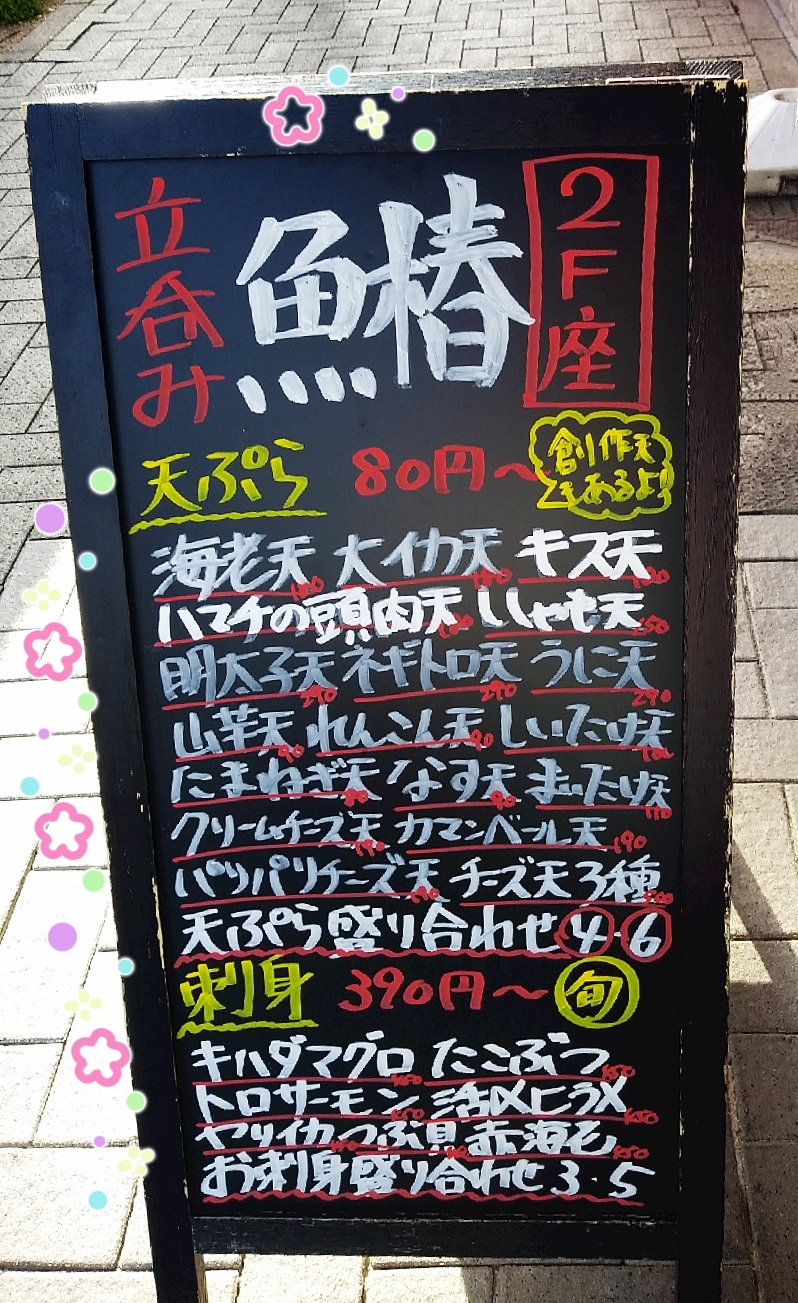 立呑み
魚椿
2F座
天ぷら 80円〜
創作天
もあるよ!
海老天 大イカ天 キス天
ハマチの頭肉天 ししゃも天 150
明太子天 290 ネギトロ天 290 うに天 290
山芋天 90 れんこん天 90 しいたけ天
たまねぎ天 80 なす天 90 まいたけ天 110
クリームチーズ天 190 カマンベール天 190
パリパリチーズ天 190 チーズ天3種 500
天ぷら盛り合わせ 4・6
刺身 390円〜 旬
キハダマグロ たこぶつ 450
トロサーモン 450 活〆ヒラメ 450
ヤリイカ つぶ貝 赤海老 450
お刺身盛り合わせ 3・5